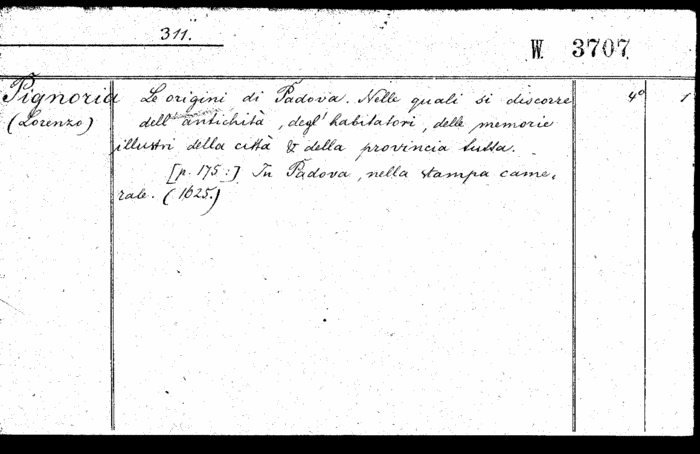 311.
W 3707
Pignoria Le origini di Padova. Nelle quali si discorre 4° 1
(Lorenzo) dell'antichità, degl'habitatori, delle memorie
illustri della città & della provincia tutta.
[p. 175:] In Padova, nella stampa came,
rale. (1625.)